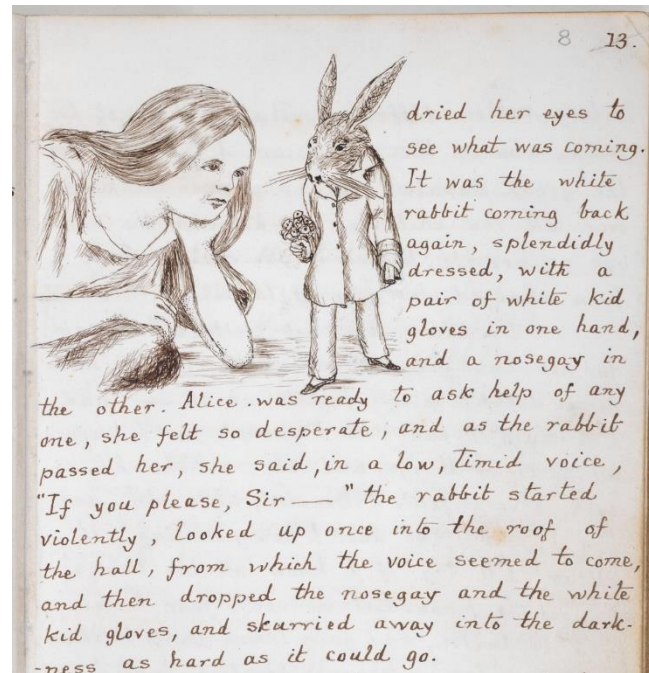 8 13.
dried her eyes to
see what was coming.
It was the white
rabbit coming back
again, splendidly
dressed, with a
pair of white kid
gloves in one hand,
and a nosegay in
the other. Alice was ready to ask help of any
one, she felt so desperate, and as the rabbit
passed her, she said, in a low, timid voice,
"If you please, Sir—" the rabbit started
violently, looked up once into the roof of
the hall, from which the voice seemed to come,
and then dropped the nosegay and the white
kid gloves, and skurried away into the dark-
-ness as hard as it could go.